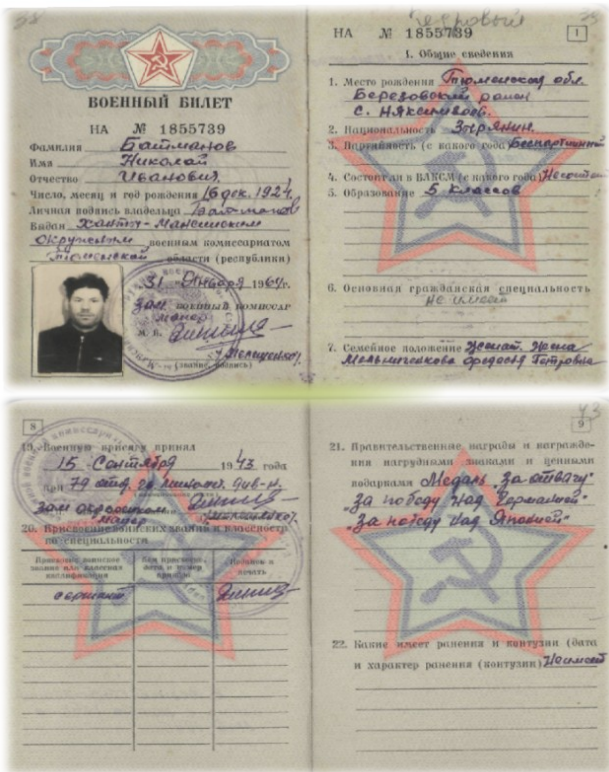 ВОЕННЫЙ БИЛЕТ
НА № 1855739
Фамилия Батманов
Имя Николай
Отчество Иванович
Число, месяц и год рождения 16 дек. 1924.
Личная подпись владельца Батманов
Выдан Ханты-Мансийским
окружным военным комиссариатом
Тюменской области (республики)
"31" января 1964 г.
Зам. военный комиссар
майор
М. П.
(звание, подпись)
НА № 1855739
1
I. Общие сведения
1. Место рождения Тюменская обл.
Березовский район
с. Няксимволь
2. Национальность Зырянин.
3. Партийность (с какого года) Беспартийный
4. Состоял ли в ВЛКСМ (с какого года) Не состоял
5. Образование 5 классов
6. Основная гражданская специальность
не имеет
7. Семейное положение Женат. Жена
Мельничкова Федосья Петровна
8
19. Военную присягу принял
15 Сентября 1943 года
при 79 отд.
Зам
майор
20. Присвоение воинских званий и классность
по специальности
Присвоено воинское
звание или классная
квалификация
Кем присвоено,
дата и номер
приказа
Подпись и
печать
сержант
43
9
21. Правительственные награды и награжде-
ния нагрудными знаками и ценными
подарками Медаль "За отвагу"
"За победу над Германией"
"За победу над Японией"
22. Какие имеет ранения и контузии (дата
и характер ранения (контузии) Не имеет